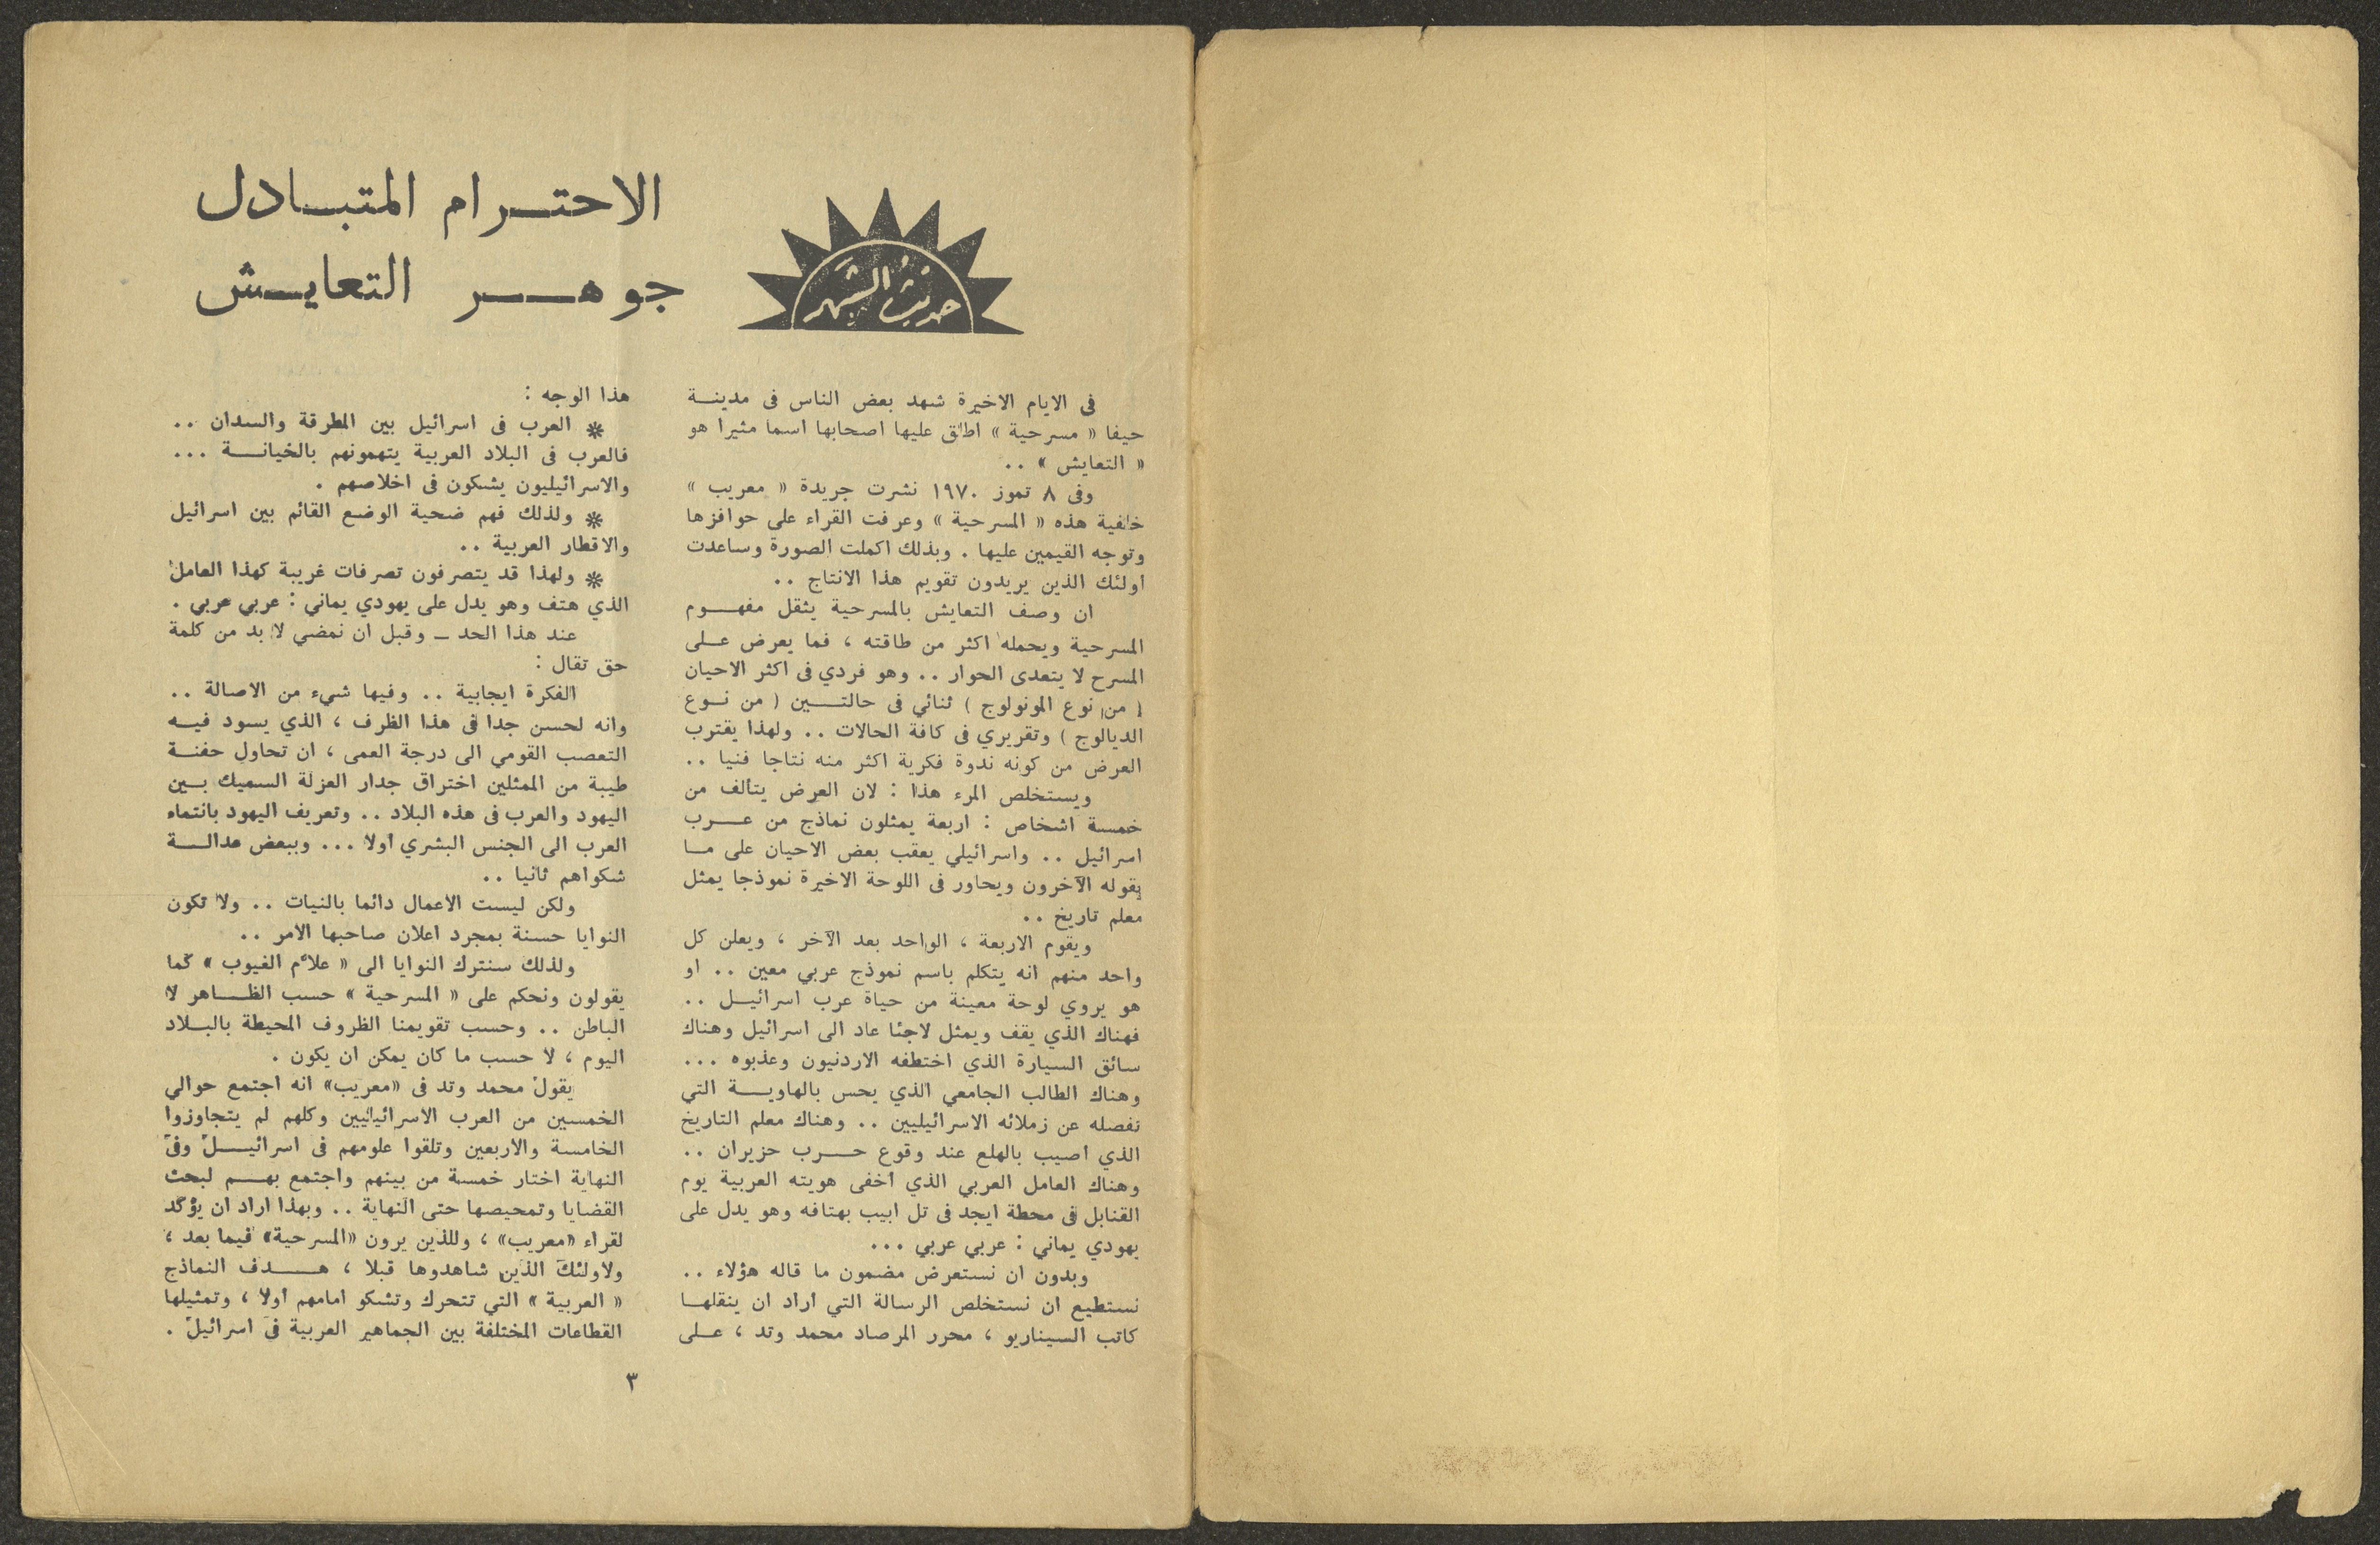 حديث الشهر
الاحتـرام المتبـادل
جوهـــر التعايـش
فى الايام الاخيرة شهد بعض الناس فى مدينـة
حيفا « مسرحية » اطلق عليها اصحابها اسما مثيرا هو
« التعايش » ..
وفى ٨ تموز ١٩٧٠ نشرت جريدة « معريب »
خلفية هذه « المسرحية » وعرفت القراء على حوافزها
وتوجه القيمين عليها . وبذلك اكملت الصورة وساعدت
اولئك الذين يريدون تقويم هذا الانتاج ..
ان وصف التعايش بالمسرحية يثقل مفهـوم
المسرحية ويحمله اكثر من طاقته ، فما يعرض عـلى
المسرح لا يتعدى الحوار .. وهو فردي فى اكثر الاحيان
( من نوع المونولوج ) ثنائي فى حالتـين ( من نـوع
الديالوج ) وتقريري فى كافة الحالات .. ولهذا يقترب
العرض من كونه ندوة فكرية اكثر منه نتاجا فنيا ..
ويستخلص المرء هذا : لان العرض يتألف من
خمسة اشخاص : اربعة يمثلون نماذج من عـرب
اسرائيل .. واسرائيلي يعقب بعض الاحيان على مـا
يقوله الآخرون ويحاور فى اللوحة الاخيرة نموذجا يمثل
معلم تاريخ ..
ويقوم الاربعة ، الواحد بعد الآخر ، ويعلن كل
واحد منهم انه يتكلم باسم نموذج عربي معين .. او
هو يروي لوحة معينة من حياة عرب اسرائيـل ..
فهناك الذي يقف ويمثل لاجئا عاد الى اسرائيل وهناك
سائق السيارة الذي اختطفه الاردنيون وعذبوه ...
وهناك الطالب الجامعي الذي يحس بالهاويـة التي
تفصله عن زملائه الاسرائيليين .. وهناك معلم التاريخ
الذي اصيب بالهلع عند وقوع حـرب حزيران ..
وهناك العامل العربي الذي أخفى هويته العربية يوم
القنابل فى محطة ايجد فى تل ابيب بهتافه وهو يدل على
يهودي يماني : عربي عربي ...
وبدون ان نستعرض مضمون ما قاله هؤلاء ..
نستطيع ان نستخلص الرسالة التي اراد ان ينقلهـا
كاتب السيناريو ، محرر المرصاد محمد وتد ، عـلى
هذا الوجه :
* العرب فى اسرائيل بين المطرقة والسدان ..
فالعرب فى البلاد العربية يتهمونهم بالخيانـة ...
والاسرائيليون يشكون فى اخلاصهم .
* ولذلك فهم ضحية الوضع القائم بين اسرائيل
والاقطار العربية ..
* ولهذا قد يتصرفون تصرفات غريبة كهذا العامل
الذي هتف وهو يدل على يهودي يماني : عربي عربي .
عند هذا الحد ــ وقبل ان نمضي لا بد من كلمة
حق تقال :
الفكرة ايجابية .. وفيها شيء من الاصالة ..
وانه لحسن جدا فى هذا الظرف ، الذي يسود فيـه
التعصب القومي الى درجة العمى ، ان تحاول حفنـة
طيبة من الممثلين اختراق جدار العزلة السميك بـين
اليهود والعرب فى هذه البلاد .. وتعريف اليهود بانتماء
العرب الى الجنس البشري أولا ... وببعض عدالـة
شكواهم ثانيا ..
ولكن ليست الاعمال دائما بالنيات .. ولا تكون
النوايا حسنة بمجرد اعلان صاحبها الامر ..
ولذلك سنترك النوايا الى « علام الغيوب » كما
يقولون ونحكم على « المسرحية » حسب الظـاهر لا
الباطن .. وحسب تقويمنا الظروف المحيطة بالبـلاد
اليوم ، لا حسب ما كان يمكن ان يكون .
يقول محمد وتد فى «معريب» انه اجتمع حوالي
الخمسين من العرب الاسرائيليين وكلهم لم يتجاوزوا
الخامسة والاربعين وتلقوا علومهم فى اسرائيـل وفى
النهاية اختار خمسة من بينهم واجتمع بهـم لبحث
القضايا وتمحيصها حتى النهاية .. وبهذا اراد ان يؤكد
لقراء «معريب» ، وللذين يرون «المسرحية» فيما بعد ،
ولاولئك الذين شاهدوها قبلا ، هـدف النماذج
« العربية » التي تتحرك وتشكو امامهم أولا ، وتمثيلها
القطاعات المختلفة بين الجماهير العربية فى اسرائيل .
٣